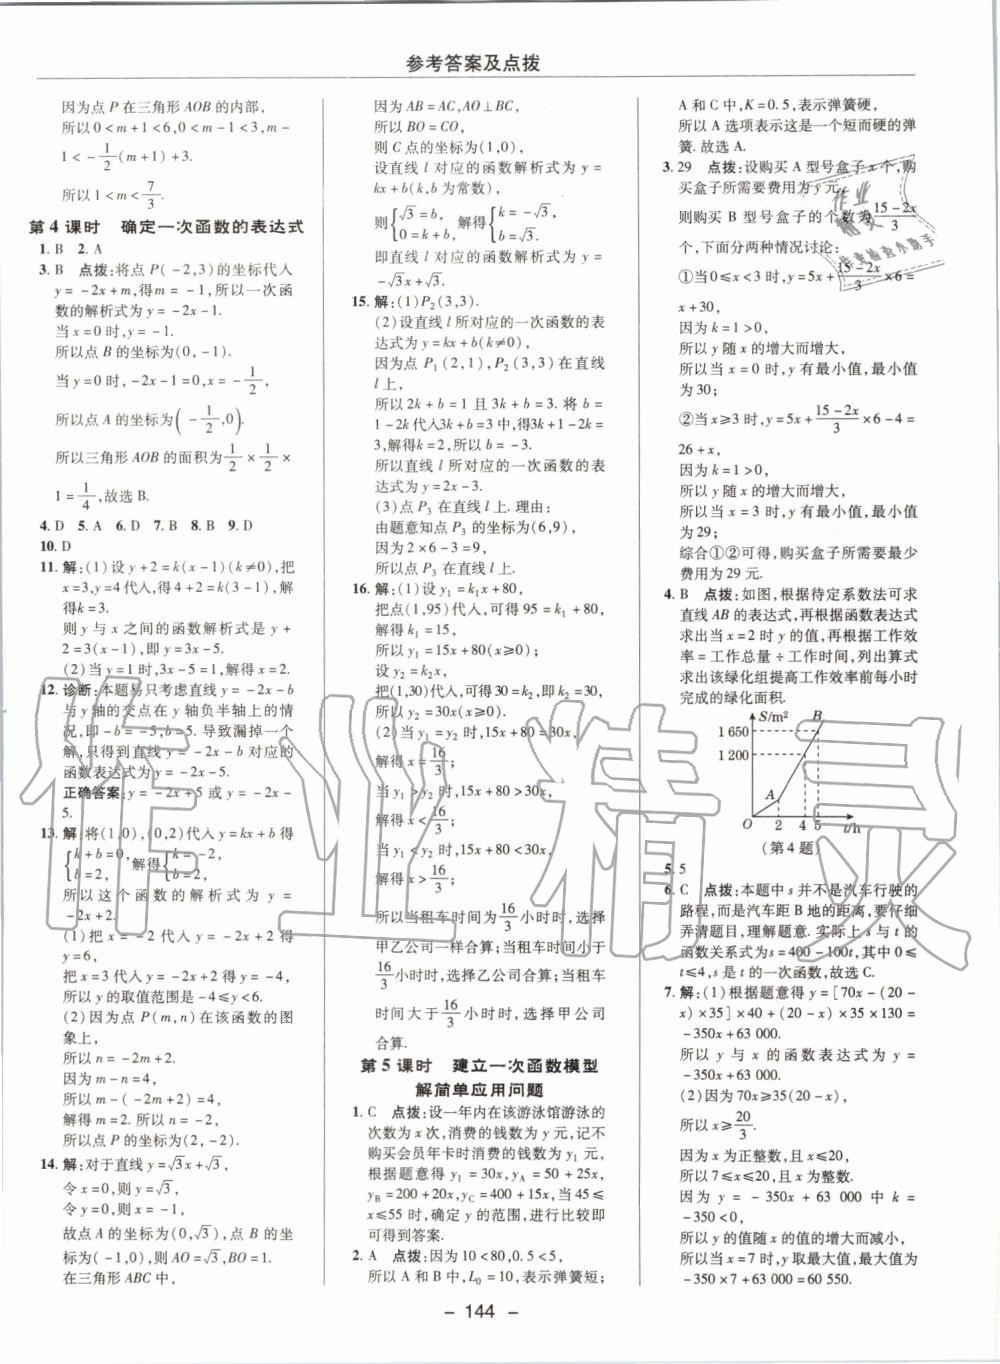 参考答案及点拨
因为点 P 在三角形 AOB 的内部,
所以 0<m+1<6,0<m-1<3,m-
1<-1/2(m+1)+3.
所以 1<m<7/3.
第 4 课时 确定一次函数的表达式
1. B 2. A
3. B 点拨:将点 P(-2,3)的坐标代入
y=-2x+m,得 m=-1,所以一次函
数的解析式为 y=-2x-1.
当 x=0 时,y=-1.
所以点 B 的坐标为(0,-1).
当 y=0 时,-2x-1=0,x=-1/2,
所以点 A 的坐标为(-1/2,0).
所以三角形 AOB 的面积为 1/2×1/2×
1=1/4,故选 B.
4. D 5. A 6. D 7. B 8. B 9. D
10. D
11. 解:(1)设 y+2=k(x-1)(k≠0),把
x=3,y=4 代入,得 4+2=k(3-1),解
得 k=3.
则 y 与 x 之间的函数解析式是 y+
2=3(x-1),即 y=3x-5.
(2)当 y=1 时,3x-5=1,解得 x=2.
12. 诊断:本题易只考虑直线 y=-2x-b
与 y 轴的交点在 y 轴负半轴上的情
况,即-b=-5,b=5.导致漏掉一个
解,只得到直线 y=-2x-b 对应的
函数表达式为 y=-2x-5.
正确答案:y=-2x+5 或 y=-2x-
5.
13. 解:将(1,0),(0,2)代入 y=kx+b 得
{k+b=0, b=2, 解得{k=-2, b=2,
所以这个函数的解析式为 y=
-2x+2.
(1)把 x=-2 代入 y=-2x+2 得
y=6,
把 x=3 代入 y=-2x+2 得 y=-4,
所以 y 的取值范围是-4≤y<6.
(2)因为点 P(m,n)在该函数的图
象上,
所以 n=-2m+2.
因为 m-n=4,
所以 m-(-2m+2)=4,
解得 m=2.所以 n=-2,
所以点 P 的坐标为(2,-2).
14. 解:对于直线 y=√3x+√3,
令 x=0,则 y=√3,
令 y=0,则 x=-1,
故点 A 的坐标为(0,√3),点 B 的坐
标为(-1,0),则 AO=√3,BO=1.
在三角形 ABC 中,
因为 AB=AC,AO⊥BC,
所以 BO=CO,
则 C 点的坐标为(1,0),
设直线 l 对应的函数解析式为 y=
kx+b(k,b 为常数),
则{√3=b, 0=k+b, 解得{k=-√3, b=√3,
即直线 l 对应的函数解析式为 y=
-√3x+√3.
15. 解:(1)P₂(3,3).
(2)设直线 l 所对应的一次函数的表
达式为 y=kx+b(k≠0),
因为点 P₁(2,1),P₂(3,3)在直线
l 上,
所以 2k+b=1 且 3k+b=3.将 b=
1-2k 代入 3k+b=3 中,得 3k+1-2k=
3,解得 k=2,所以 b=-3.
所以直线 l 所对应的一次函数的表
达式为 y=2x-3.
(3)点 P₃ 在直线 l 上.理由:
由题意知点 P₃ 的坐标为(6,9),
因为 2×6-3=9,
所以点 P₃ 在直线 l 上.
16. 解:(1)设 y₁=k₁x+80,
把点(1,95)代入,可得 95=k₁+80,
解得 k₁=15,
所以 y₁=15x+80(x≥0);
设 y₂=k₂x,
把(1,30)代入,可得 30=k₂,即 k₂=30,
所以 y₂=30x(x≥0).
(2)当 y₁=y₂ 时,15x+80=30x,
解得 x=16/3;
当 y₁>y₂ 时,15x+80>30x,
解得 x<16/3;
当 y₁<y₂ 时,15x+80<30x,
解得 x>16/3;
所以当租车时间为16/3小时时,选择
甲乙公司一样合算;当租车时间小于
16/3小时时,选择乙公司合算;当租车
时间大于16/3小时时,选择甲公司
合算.
第 5 课时 建立一次函数模型
解简单应用问题
1. C 点拨:设一年内在该游泳馆游泳的
次数为 x 次,消费的钱数为 y 元,记不
购买会员年卡时消费的钱数为 y₁ 元,
根据题意得 y₁=30x,y_A=50+25x,
y_B=200+20x,y_C=400+15x,当 45≤
x≤55 时,确定 y 的范围,进行比较即
可得到答案.
2. A 点拨:因为 10<80,0.5<5,
所以 A 和 B 中,L₀=10,表示弹簧短;
A 和 C 中,K=0.5,表示弹簧硬,
所以 A 选项表示这是一个短而硬的弹
簧.故选 A.
3. 29 点拨:设购买 A 型号盒子 x 个,购
买盒子所需要费用为 y 元,
则购买 B 型号盒子的个数为(15-2x)/3
个,下面分两种情况讨论:
①当 0≤x<3 时,y=5x+(15-2x)/3×6=
x+30,
因为 k=1>0,
所以 y 随 x 的增大而增大,
所以当 x=0 时,y 有最小值,最小值
为 30;
②当 x≥3 时,y=5x+(15-2x)/3×6-4=
26+x,
因为 k=1>0,
所以 y 随 x 的增大而增大,
所以当 x=3 时,y 有最小值,最小值
为 29;
综合①②可得,购买盒子所需要最少
费用为 29 元.
4. B 点拨:如图,根据待定系数法可求
直线 AB 的表达式,再根据函数表达式
求出当 x=2 时 y 的值,再根据工作效
率=工作总量÷工作时间,列出算式
求出该绿化组提高工作效率前每小时
完成的绿化面积.
S/m²
B
1 650
1 200
A
O 2 4 5 t/h
(第 4 题)
5. 5
6. C 点拨:本题中 s 并不是汽车行驶的
路程,而是汽车距 B 地的距离,要仔细
弄清题目,理解题意.实际上 s 与 t 的
函数关系式为 s=400-100t,其中 0≤
t≤4,s 是 t 的一次函数,故选 C.
7. 解:(1)根据题意得 y=[70x-(20-
x)×35]×40+(20-x)×35×130=
-350x+63 000.
所以 y 与 x 的函数表达式为 y=
-350x+63 000.
(2)因为 70x≥35(20-x),
所以 x≥20/3.
因为 x 为正整数,且 x≤20,
所以 7≤x≤20,且 x 为整数.
因为 y=-350x+63 000 中 k=
-350<0,
所以 y 的值随 x 的值的增大而减小,
所以当 x=7 时,y 取最大值,最大值为
-350×7+63 000=60 550.
- 144 -
作业精灵
作业
精灵